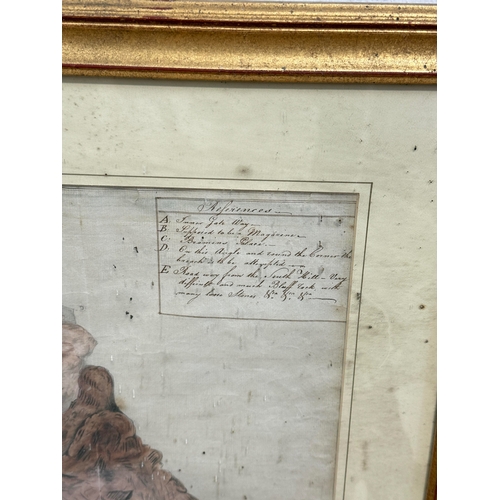 References
A. Inner Gate Way
B. Supposed to be a Magazine
C. Place
D. On this Angle and round the Corner the
breach to be attempted
E. Road way from the South Hill - Very
difficult and much Bluff Rock with
many loose Stones &c. &c. &c.